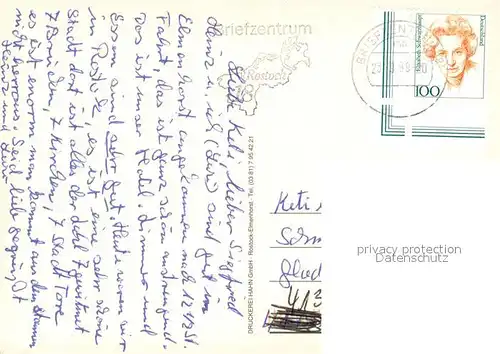 Liebe Keti, lieber Siegfried
Heinz u. ich (Lure) sind gut in
Elmenhorst angekommen nach 12 Std.
Fahrt, das ist ganz schön anstrengend.
Das ist unser Hotel. Zimmer und
Essen sind sehr gut. Heute waren wir
in Rostock, es ist eine sehr schöne
Stadt dort ist alles der Zahl 7 gewidmet
7 Brücken, 7 Kirchen, 7 Stadt Tore
es ist enorm man kommt aus dem Staunen
nicht heraus. Seid lieb gegrüßt
Heinz und
DRUCKEREI HAHN GmbH · Rostock-Elmenhorst, Tel. (03 81) 7 95 42 21
Briefzentrum
Rostock
18
BRIEFZENTRUM
Deutschland
Elisabeth Schwarzhaupt
100
Keti
413
privacy protection
Datenschutz